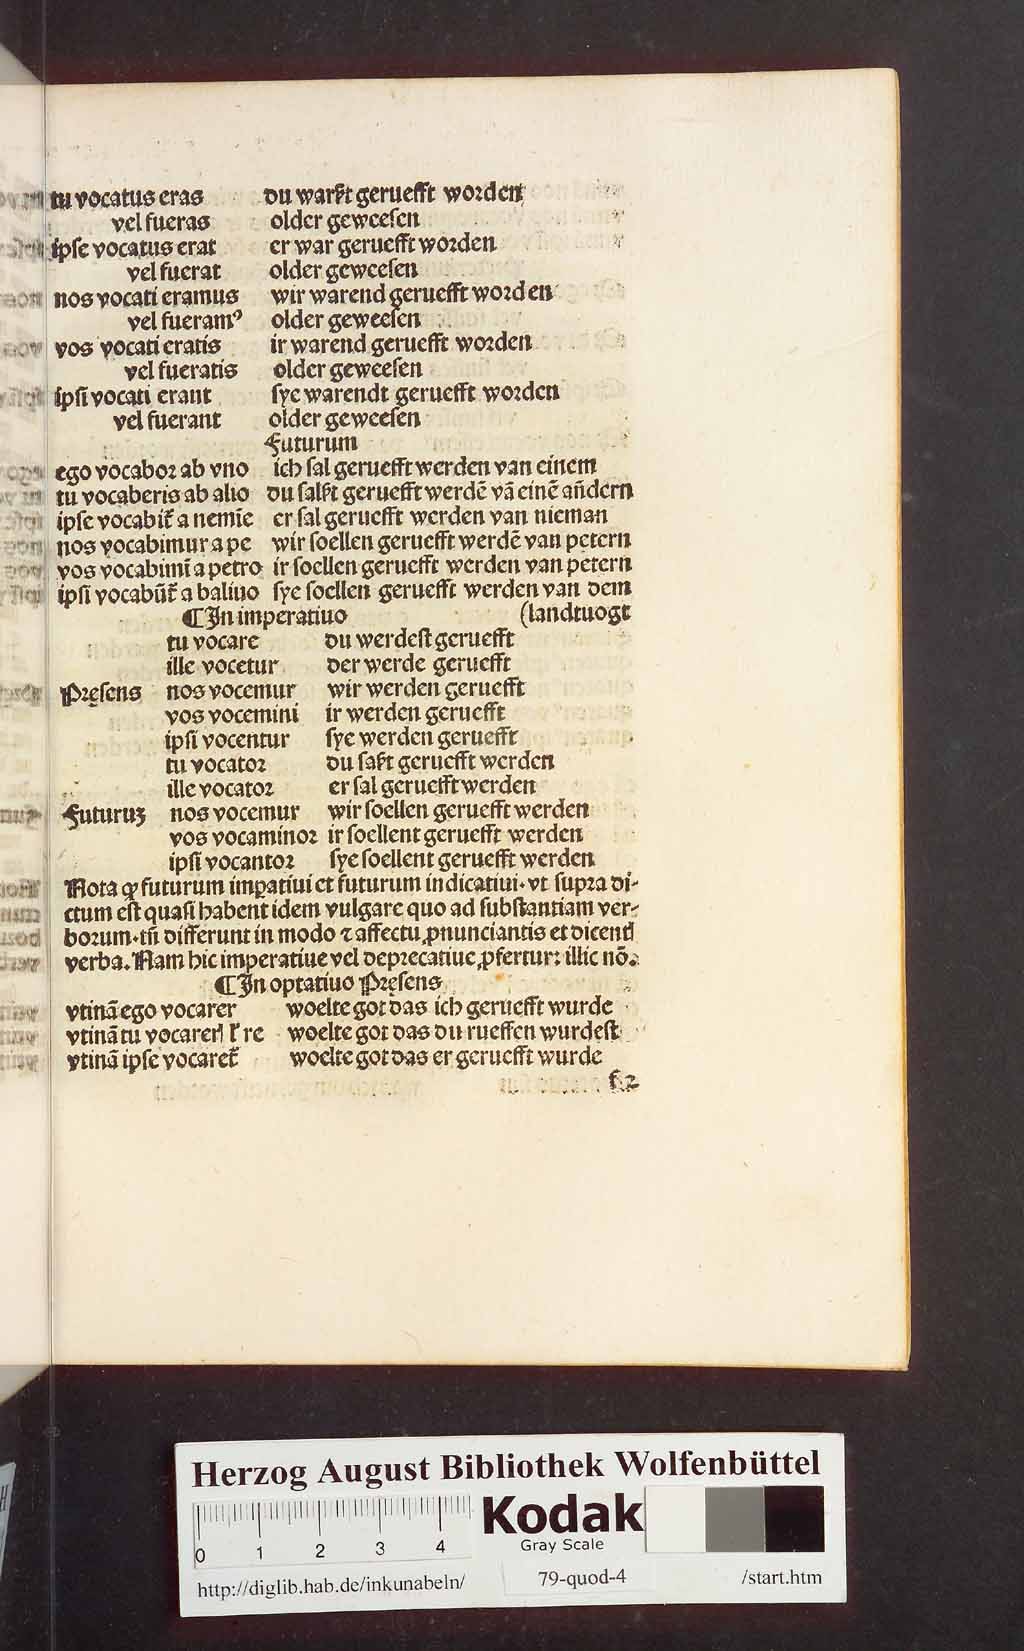 tu vocatus eras du warſt geruefft worden
vel fueras older geweeſen
ipſe vocatus erat er war geruefft worden
vel fuerat older geweeſen
nos vocati eramus wir warend geruefft worden
vel fueramꝰ older geweeſen
vos vocati eratis ir warend geruefft worden
vel fueratis older geweeſen
ipſi vocati erant ſye warendt geruefft worden
vel fuerant older geweeſen
Futurum
ego vocabor ab vno ich ſal geruefft werden van einem
tu vocaberis ab alio du ſalſt geruefft werdē vā einē an̄dern
ipſe vocabit̄ a nemīe er ſal geruefft werden van nieman
nos vocabimur a pe wir ſoellen geruefft werdē van petern
vos vocabimī a petro ir ſoellen geruefft werden van petern
ipſi vocabūt̄ a baliuo ſye ſoellen geruefft werden van dem
¶ In imperatiuo (landtuogt
tu vocare du werdeſt geruefft
ille vocetur der werde geruefft
Pręſens nos vocemur wir werden geruefft
vos vocemini ir werden geruefft
ipſi vocentur ſye werden geruefft
tu vocator du ſaſt geruefft werden
ille vocator er ſal geruefft werden
Futuruꝫ nos vocemur wir ſoellen geruefft werden
vos vocaminor ir ſoellent geruefft werden
ipſi vocantor ſye ſoellent geruefft werden
Nota ꝙ futurum imꝑatiui et futurum indicatiui· vt ſupra di-
ctum eſt quaſi habent idem vulgare quo ad ſubſtantiam ver-
borum· tn̄ differunt in modo ⁊ affectu ꝓnunciantis et dicentꝭ
verba. Nam hic imperatiue vel deprecatiue ꝓfertur: illic nō.
¶ In optatiuo Pręſens
vtinā ego vocarer woelte got das ich geruefft wurde
vtinā tu vocarerꝭ ł re woelte got das du rueffen wurdeſt
vtinā ipſe vocaret̄ woelte got das er geruefft wurde
f 2
Herzog August Bibliothek Wolfenbüttel
Kodak
Gray Scale
0 1 2 3 4
http://diglib.hab.de/inkunabeln/ 79-quod-4 /start.htm